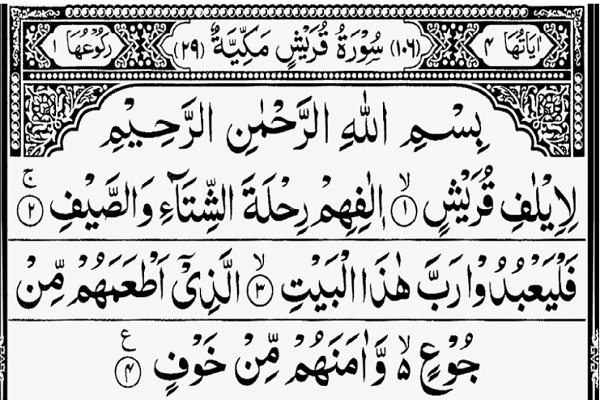 اٰيَاتُهَا ٤ (١٠٦) سُوْرَةُ قُرَيْشٍ مَكِّيَّةٌ (٢٩) رُكُوْعُهَا ١
بِسْمِ اللّٰهِ الرَّحْمٰنِ الرَّحِيْمِ
لِاِيْلٰفِ قُرَيْشٍ ۙ‏﴿١﴾ اٖلٰفِهِمْ رِحْلَةَ الشِّتَآءِ وَالصَّيْفِ ۚ‏﴿٢﴾
فَلْيَعْبُدُوْا رَبَّ هٰذَا الْبَيْتِ ۙ‏﴿٣﴾ الَّذِيْٓ اَطْعَمَهُمْ مِّنْ
جُوْعٍ ەۙ وَّاٰمَنَهُمْ مِّنْ خَوْفٍ ﴿٤﴾ ع